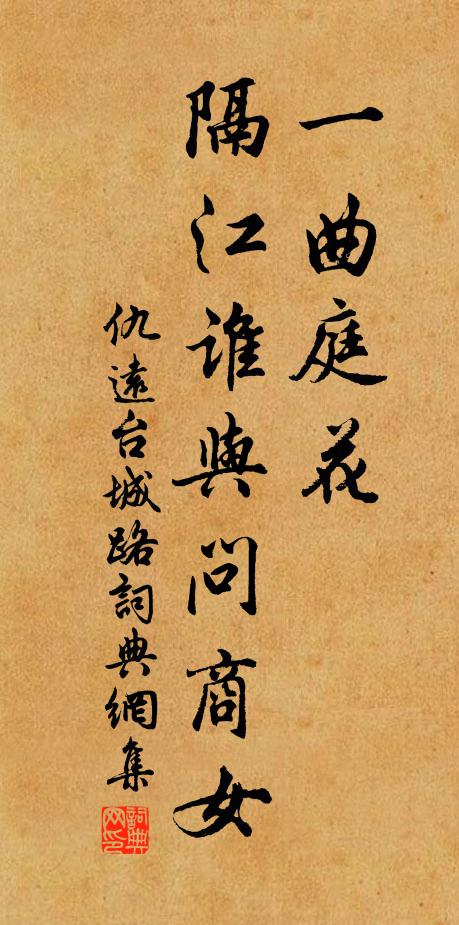 一曲庭花
隔江誰與問商女
仇遠台城路詞典網集
詞典網印